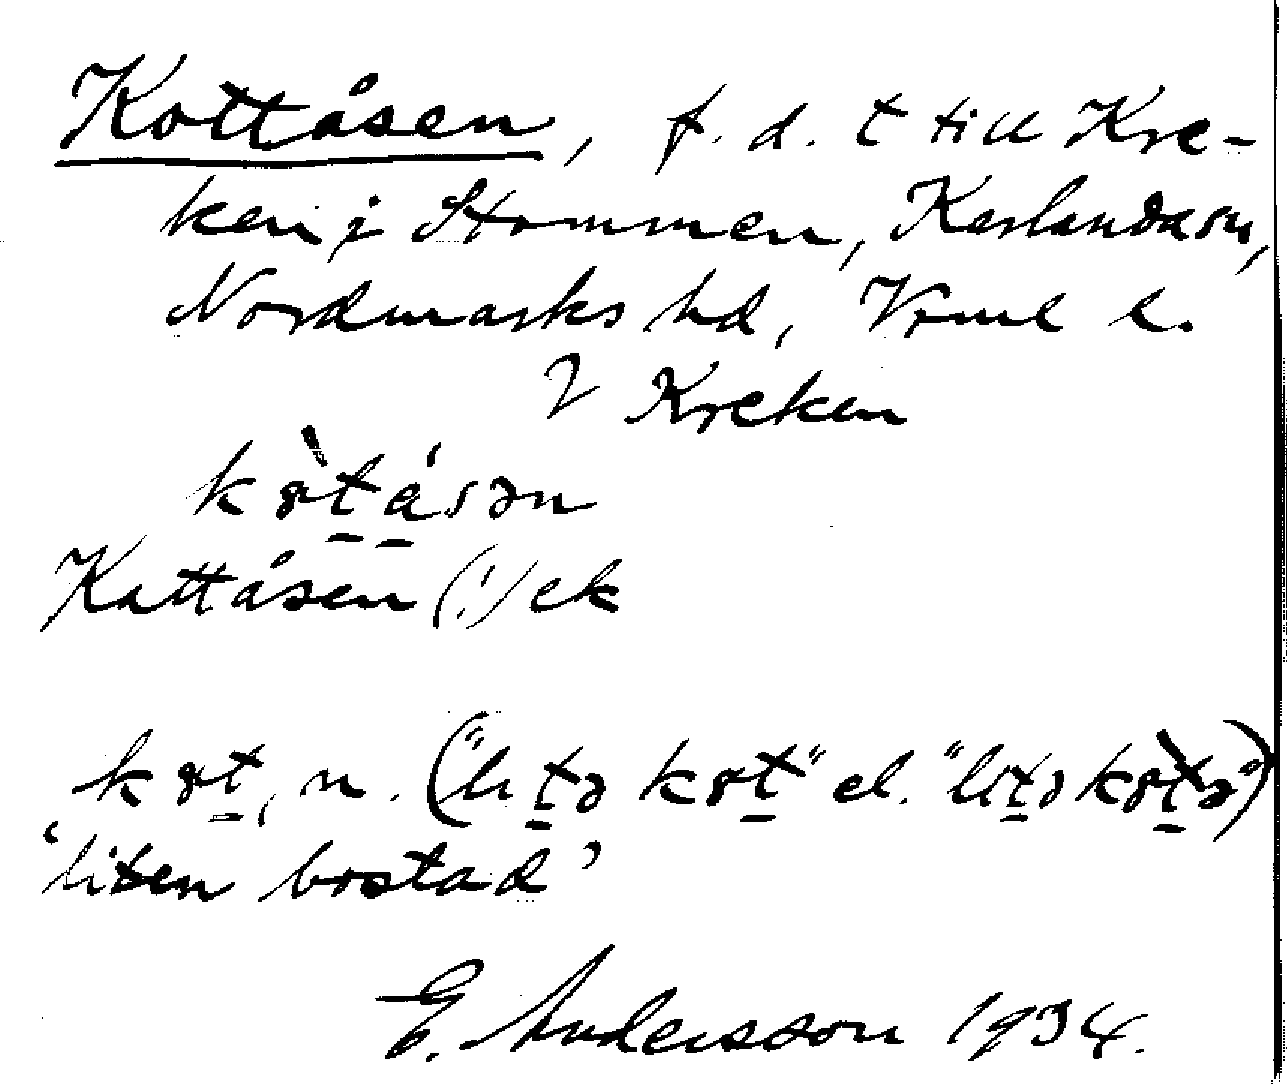 Kottåsen, f. d. t till Kre-
ken i Stommen, Karlanda sn,
Nordmarks hd, Vrml l.
V Kreken
kòtåsən
Kattåsen (!) ek
kot, n. ("litə kot" el. "litə kòtə")
'liten bostad'
E. Andersson 1934.